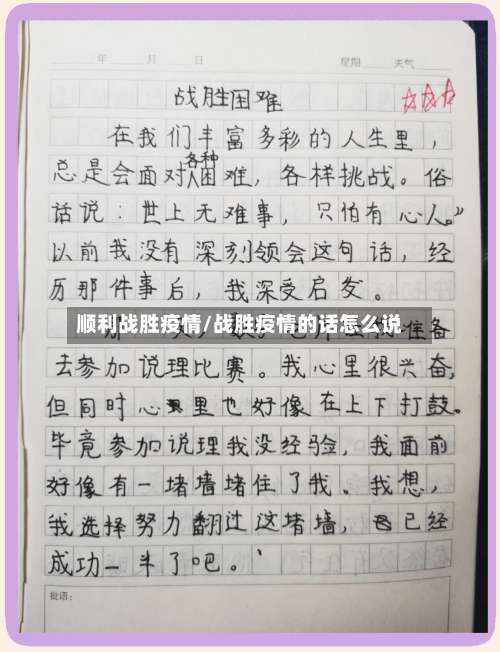 年 月 日 星期 天气
战胜困难
在我们丰富多彩的人生里，
总是会面对各种困难，各样挑战。俗
话说：世上无难事，只怕有心人。”
以前我没有深刻领会这句话，经
历那件事后，我深受启发。
顺利战胜疫情/战胜疫情的话怎么说
准备
去参加说理比赛。我心里很兴奋，
但同时心里也好像在上下打鼓。
毕竟参加说理我没经验，我面前
好像有一堵墙堵住了我。我想，
我选择努力翻过这堵墙，已经
成功一半了吧。
批语：